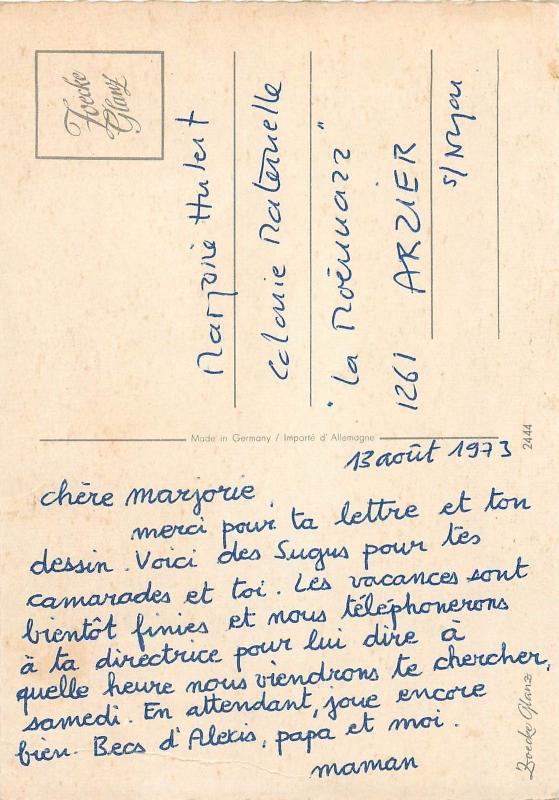 Zoecke
Glanz
Marjorie Hubert
Colonie Maternelle
"La Moënnazz"
1261 ARZIER
s/Nyon
Made in Germany / Importé d'Allemagne
2444
13 août 1973
chère marjorie,
merci pour ta lettre et ton
dessin. Voici des Sugus pour tes
camarades et toi. Les vacances sont
bientôt finies et nous téléphonerons
à ta directrice pour lui dire à
quelle heure nous viendrons te chercher,
samedi. En attendant, joue encore
bien. Becs d'Alexis, papa et moi.
maman
Zoecke Glanz